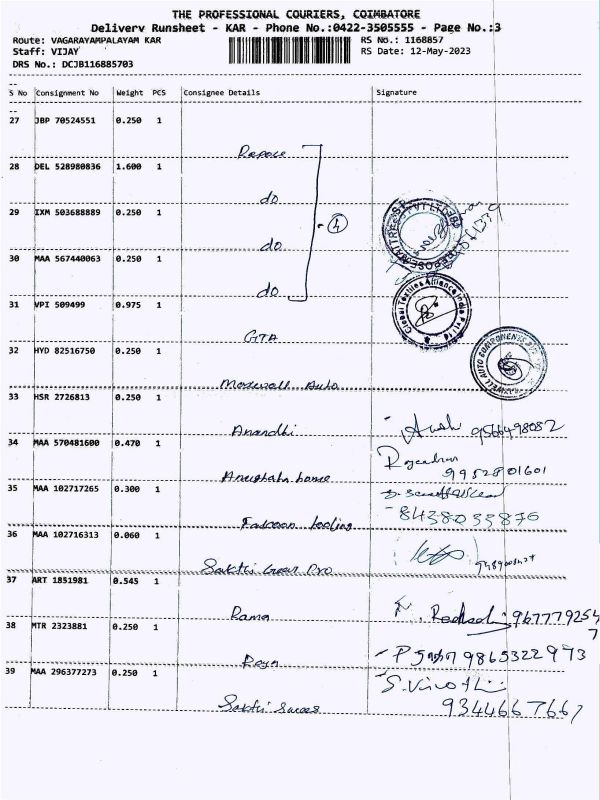 THE PROFESSIONAL COURIERS, COIMBATORE
Delivery Runsheet - KAR - Phone No.:0422-3505555 - Page No.:3
Route: VAGARAYAMPALAYAM KAR
RS No.: 1168857
Staff: VIJAY
RS Date: 12-May-2023
DRS No.: DCJB116885703
S No Consignment No Weight PCS Consignee Details Signature
27 JBP 70524551 0.250 1
Repose
28 DEL 528980836 1.600 1
do
29 IXM 503688889 0.250 1
4
do
30 MAA 567440063 0.250 1
do
31 VPI 509499 0.975 1
Global Textiles Alliance India Pvt Ltd
GTA
32 HYD 82516750 0.250 1
Auto
33 HSR 2726813 0.250 1
Anandhi 9566498082
34 MAA 570481600 0.470 1
home 9952801601
35 MAA 102717265 0.300 1
8438035876
36 MAA 102716313 0.060 1
Sakthi Gear Pro
37 ART 1851981 0.545 1
Rama
38 MTR 2323881 0.250 1
9865322973
39 MAA 296377273 0.250 1
S.Vinothi
Sakthi 9344667667